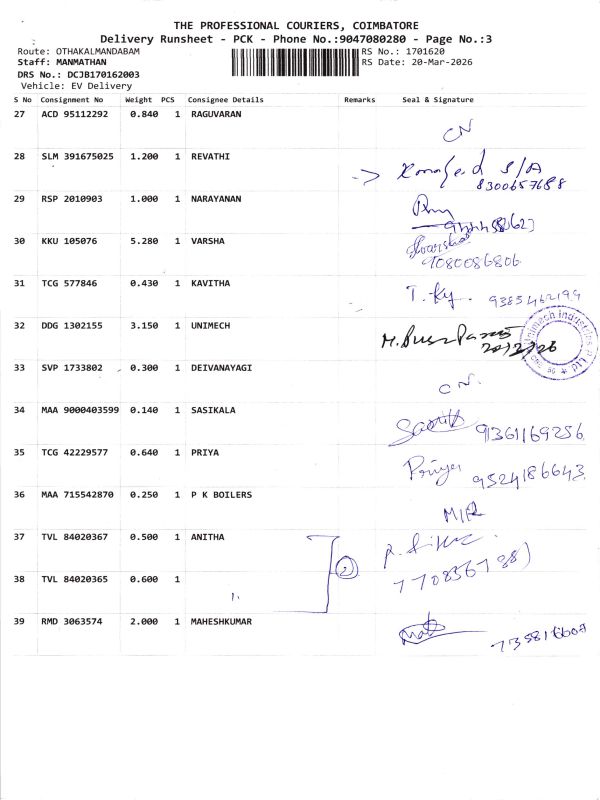 THE PROFESSIONAL COURIERS, COIMBATORE
Delivery Runsheet - PCK - Phone No.:9047080280 - Page No.:3
Route: OTHAKALMANDABAM RS No.: 1701620
Staff: MANMATHAN RS Date: 20-Mar-2026
DRS No.: DCJB170162003
Vehicle: EV Delivery
S No Consignment No Weight PCS Consignee Details Remarks Seal & Signature
27 ACD 95112292 0.840 1 RAGUVARAN
CN
28 SLM 391675025 1.200 1 REVATHI
S/A
8300657688
29 RSP 2010903 1.000 1 NARAYANAN
30 KKU 105076 5.280 1 VARSHA
9080086806
31 TCG 577846 0.430 1 KAVITHA
T. Ky. 9385462199
32 DDG 1302155 3.150 1 UNIMECH
Unimech Industries
33 SVP 1733802 0.300 1 DEIVANAYAGI
CN.
34 MAA 9000403599 0.140 1 SASIKALA
9361169256
35 TCG 42229577 0.640 1 PRIYA
Priya 9524186643
36 MAA 715542870 0.250 1 P K BOILERS
37 TVL 84020367 0.500 1 ANITHA
2
38 TVL 84020365 0.600 1
39 RMD 3063574 2.000 1 MAHESHKUMAR